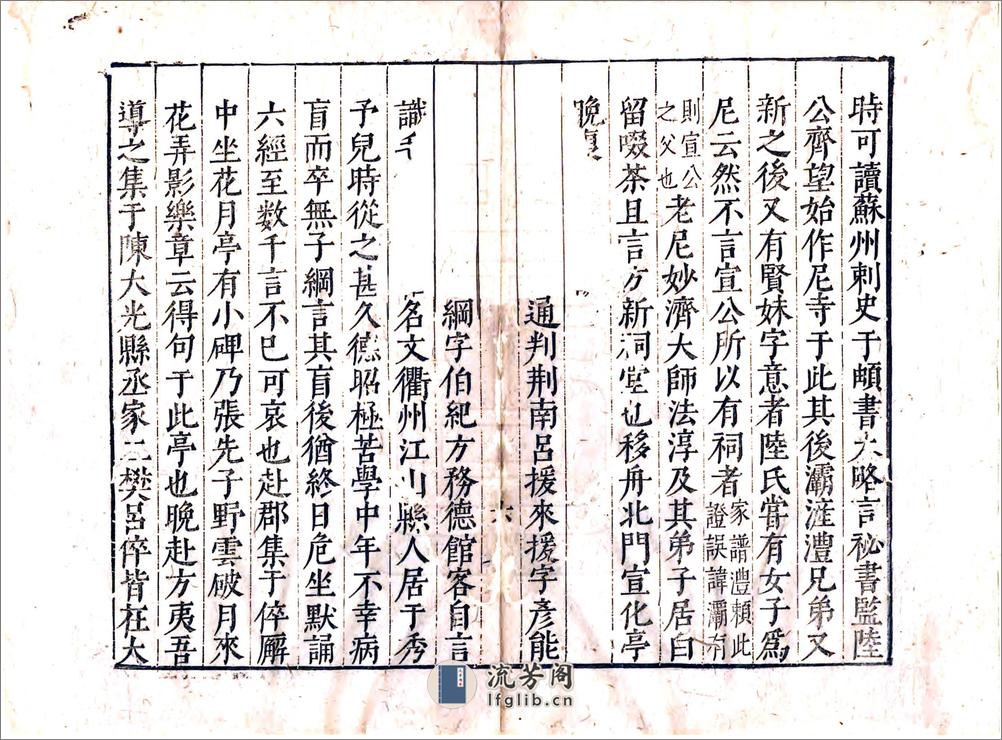 時可讀蘇州刺史于頔書大略言祕書監陸
公齊望始作尼寺于此其後灞滻澧兄弟又
新之後又有賢妹字意者陸氏嘗有女子爲
尼云然不言宣公所以有祠者家譜澧賴此證誤諱灞有
則宣公之父也老尼妙濟大師法淳及其弟子居白
留啜茶且言方新祠堂也移舟北門宣化亭
晚復
通判荆南呂援來援字彥能
綱字伯紀方務德館客自言
識
名文衢州江山縣人居于秀
予兒時從之甚久德昭極苦學中年不幸病
盲而卒無子綱言其盲後猶終日危坐默誦
六經至数千言不已可哀也赴郡集于倅廨
中坐花月亭有小碑乃張先子野雲破月來
花弄影樂章云得句于此亭也晚赴方夷吾
導之集于陳大光縣丞家二樊呂倅皆在大
六
流芳阁
lfglib.cn